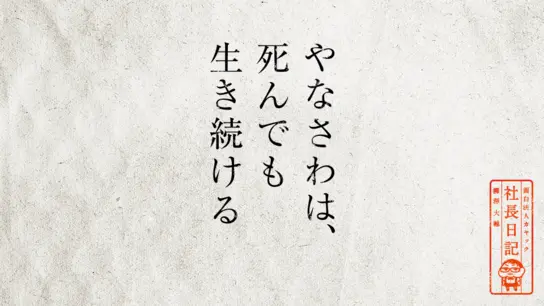 やなさわは、
死んでも
生き続ける
面白法人カヤック
社長日記
柳澤 大輔